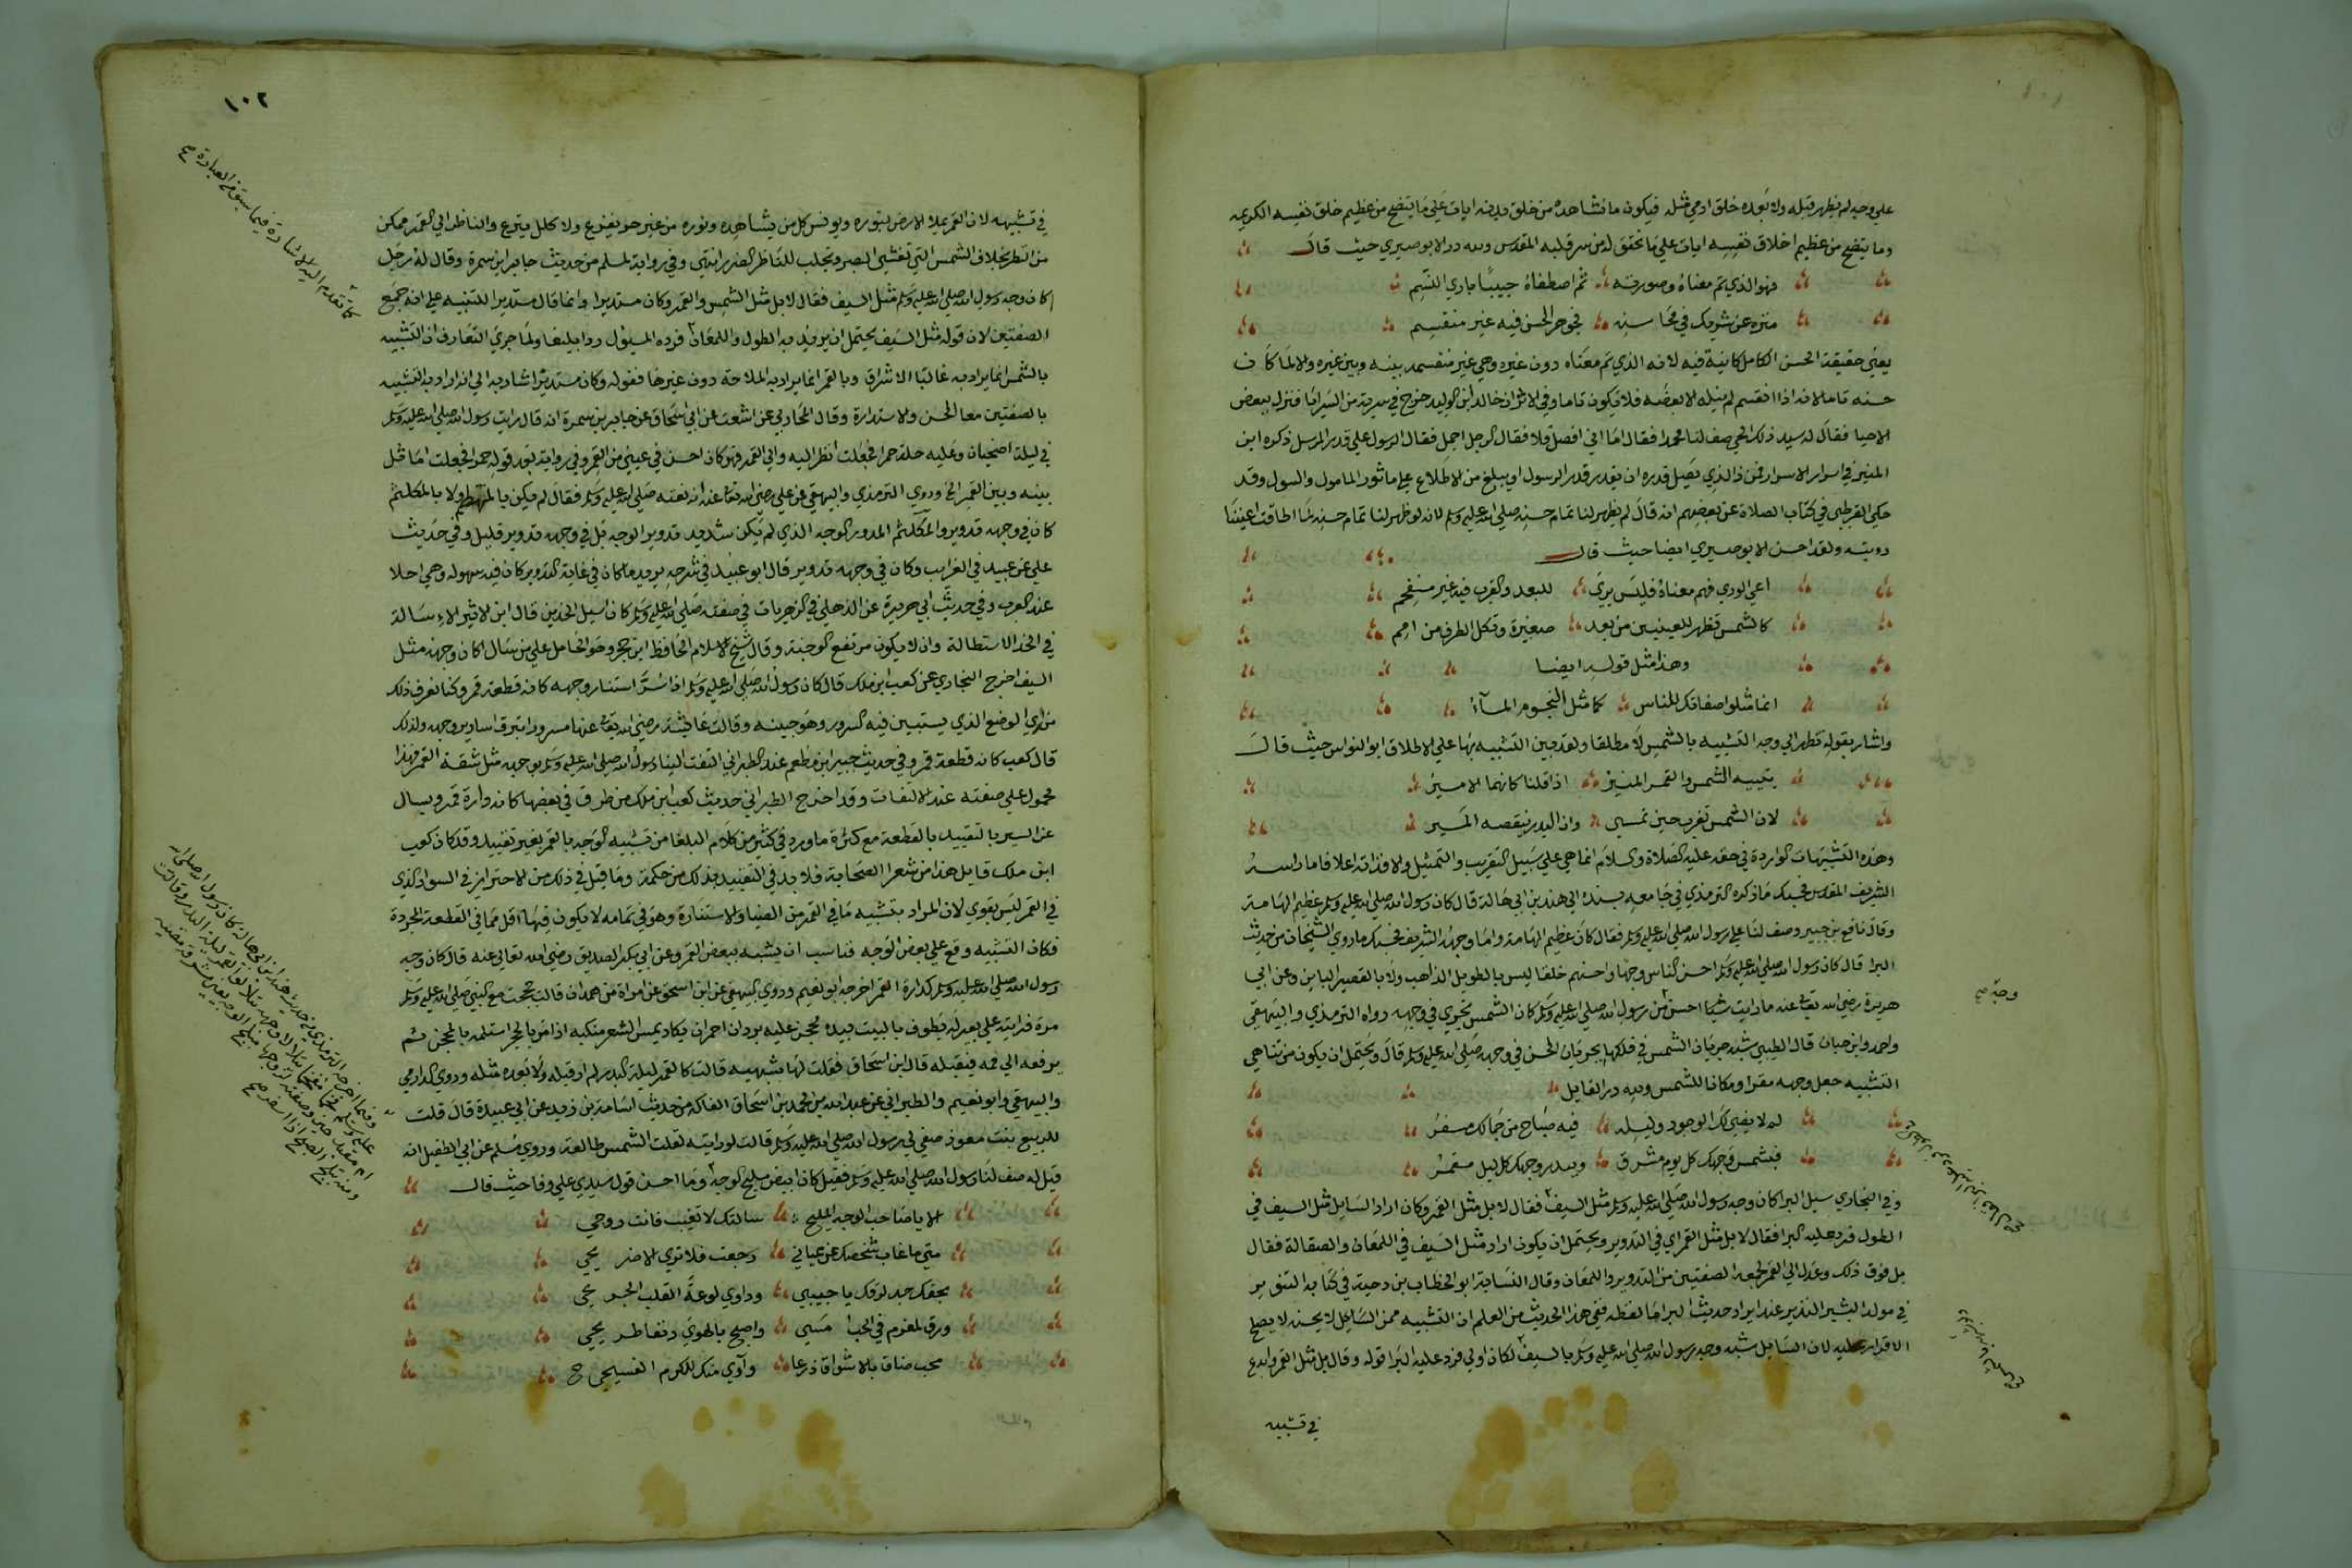 على وجه لم يظهر قبله ولا بعده خلق ادمي مثله فيكون ما نشاهده من خلق بدنه ايات على ما يتضح من عظيم خلق نفسه الكريمه
وما يتضح من عظيم اخلاق نفسه ايات على ما تحقق له من سر قلبه المقدس ولله در الابوصيري حيث قال
فهو الذي تم معناه وصورته ثم اصطفاه حبيبا باري النسم
منزه عن شريك في محاسنه فجوهر الحسن فيه غير منقسم
يعني حقيقة الحسن الكامل كائنة فيه لانه الذي تم معناه دون غيره وهي غير منقسمه بينه وبين غيره والا لما كان
حسنه تاما لانه اذا انقسم لم ينله الا بعضه فلا يكون تاما وفي الاثر ان خالد ابن الوليد خرج في سرية من السرايا فنزل ببعض
الاحيا فقال له سيد ذلك الحي صف لنا محمدا فقال اما اني افصل فلا فقال الرجل اجمل فقال الرسول على قدر المرسل ذكره ابن
المنير في اسرار الاسرا فمن ذا الذي يصل قدره ان يقدر قدر الرسول او يبلغ من الاطلاع على ماثور المامول والسول وقد
حكى القرطبي في كتاب الصلاة عن بعضهم انه قال لم يظهر لنا تمام حسنه صلى الله عليه وسلم لانه لو ظهر لنا تمام حسنه لما اطاقت اعيننا
رويته ولقد احسن الابوصيري ايضا حيث قال
اعيى الورى فهم معناه فليس يرى للبعد والقرب فيه غير منفحم
كالشمس تظهر للعينين من بعد صغيرة وتكل الطرف من امم
وهذا مثل قوله ايضا
انما مثلوا صفاتك للناس كما مثل النجوم المآء
واشار بقوله تظهر الى وجه التشبيه بالشمس لا مطلقا ولقد بين التشبيه بها على الاطلاق ابو النواس حيث قال
يتيه الشمس والقمر المنير اذا قلنا كانهما الامير
لان الشمس تغرب حين تمسي وان البدر ينقصه المسير
وهذه التشبيهات الواردة في حقه عليه الصلاة والسلام انما هي على سبيل التقريب والتمثيل والا فذاته اعلا فاما راسه
الشريف المقدس فحسبك ما ذكره الترمذي في جامعه بسنده الى هند بن ابي هالة قال كان رسول الله صلى الله عليه وسلم عظيم الهامة
وقال نافع بن جبير وصف لنا علي رسول الله صلى الله عليه وسلم فقال كان عظيم الهامة واما وجهه الشريف فحسبك ما روي الشيخان من حديث
البرا قال كان رسول الله صلى الله عليه وسلم احسن الناس وجها واحسنهم خلقا ليس بالطويل الذاهب ولا بالقصير الباين وعن ابي
هريرة رضي الله تعالى عنه ما رايت شيا احسن من رسول الله صلى الله عليه وسلم كان الشمس تجري في وجهه رواه الترمذي والبيهقي
واحمد وابن حبان قال الطيبي شبه جريان الشمس في فلكها بجريان الحسن في وجهه صلى الله عليه وسلم قال ويحتمل ان يكون من تناهي
التشبيه جعل وجهه مقرا ومكانا للشمس ولله در القايل
لم لا يضي بك الوجود وليله فيه صباح من جمالك مسفر
فبشمس وجهك كل يوم مشرق وببدر وجهك كل ليل مقمر
وفي البخاري سيل البرا كان وجه رسول الله صلى الله عليه وسلم مثل السيف فقال لا بل مثل القمر وكان اراد السايل مثل السيف في
الطول فرد عليه البرا فقال لا بل مثل القمر اي في التدوير ويحتمل ان يكون اراد مثل السيف في اللمعان والصقالة فقال
بل فوق ذلك وعدل الى القمر لجمعه الصفتين من التدوير واللمعان وقال النسابة ابو الخطاب بن دحية في كتابه التنوير
في مولد البشير النذير عند ايراد حديث البرا ما لفظه ففي هذا الحديث من العلم ان التشبيه ممن السايل لا يحسنه لا يصلح
الاقرار عليه لان السايل شبه وجه رسول الله صلى الله عليه وسلم بالسيف لكان اولى فرد عليه البرا قوله وقال بل مثل القمر وابدع
في تشبيه
وجه صح
١٠٢
في تشبيهه لان القمر يملا الارض بنوره ويونس كل من يشاهده ونوره من غير حر يفزع ولا كلل ينزع والناظر الى القمر ممكن
من النظر بخلاف الشمس التي تغشي البصر وتجلب للناظر الضرر انتهي وفي رواية لمسلم من حديث جابر ابن سمرة وقال له رجل
اكان وجه رسول الله صلى الله عليه وسلم مثل السيف فقال لا بل مثل الشمس والقمر وكان مستديرا وانما قال مستديرا للتنبيه على انه جمع
الصفتين لان قوله مثل السيف يحتمل ان يريد به الطول واللمعان فرده المسيول ردا بليغا ولما جرى التعارف ان التشبيه
بالشمس انما يراد به غالبا الاشراق وبالقمر انما يراد به الملاحة دون غيرها فقوله وكان مستديرا اشار به الى انه اراد به التشبيه
بالصفتين معا الحسن والاستدارة وقال المحاربي عن اشعث عن ابي اسحاق عن جابر بن سمرة انه قال رايت رسول الله صلى الله عليه وسلم
في ليلة اضحيان وعليه حلة حمرا فجعلت انظر اليه والى القمر فهو كان احسن في عيني من القمر وفي رواية بعد قوله حمرا فجعلت اماثل
بينه وبين القمر الخ وروي الترمذي والبيهقي عن علي رضي الله تعالى عنه انه نعته صلى الله عليه وسلم فقال لم يكن بالمطهم ولا بالمكلثم
كان في وجهه تدوير والمكلثم المدور الوجه الذي لم يكن شديد تدوير الوجه بل في وجهه تدوير قليل وفي حديث
علي عن عبيد في الغرايب وكان في وجهه تدوير قال ابو عبيد في شرحه يريد ما كان في غاية التدوير كان فيه سهولة وهي احلا
عند العرب وفي حديث ابي هريرة عن الذهلي في الزهريات في صفته صلى الله عليه وسلم كان اسيل الخدين قال ابن الاثير الاسالة
في الخد الاستطالة وان لا يكون مرتفع الوجنة وقال شيخ الاسلام الحافظ ابن حجر وهو الحامل على من سال اكان وجهه مثل
السيف اخرج البخاري عن كعب ابن ملك قال كان رسول الله صلى الله عليه وسلم اذا سر استنار وجهه كانه قطعة قمر وكنا نعرف ذلك
منه اي الموضع الذي يستبين فيه السرور وهو جبينه وقالت عائشة رضي الله تعالى عنها مسرورا تبرق اسارير وجهه ولذلك
قال كعب كانه قطعة قمر وفي حديث جبير ابن مطعم عند الطبراني التفت الينا رسول الله صلى الله عليه وسلم بوجهه مثل شقة القمر فهذا
محمول على صفته عند الالتفات وقد اخرج الطبراني حديث كعب ابن ملك من طرق في بعضها كانه دارة قمر ويسال
عن السر بالتقييد بالقطعة مع كثرة ما ورد في كثير من كلام البلغا من تشبيه الوجه بالقمر بغير تقييد وقد كان كعب
ابن ملك قايل هذا من شعرا الصحابة فلا بد في التقييد بذلك من حكمة وما قيل في ذلك من الاحتراز في السواد الذي
في القمر ليس بقوي لان المراد بتشبيه ما في القمر من الضيا والاستنارة وهو في تمامه لا يكون فيها اقل مما في القطعة المجردة
فكان التشبيه وقع على بعض الوجه فناسب ان يشبه ببعض القمر وعن ابي بكر الصديق رضي الله تعالى عنه قال كان وجه
رسول الله صلى الله عليه وسلم كدارة القمر اخرجه ابو نعيم وروى البيهقي عن ابن اسحق عن امراة من همدان قالت حججت مع النبي صلى الله عليه وسلم
مرة فرايته على بعير له يطوف بالبيت بيده محجن عليه بردان احمران يكاد يمس الشعر منكبه اذا مر بالحجر استلمه بالمحجن ثم
يرفعه الى فمه فيقبله قال ابن اسحاق فقلت لها شبهيه قالت كالقمر ليلة البدر لم ار قبله ولا بعده مثله وروى الدارمي
والبيهقي وابو نعيم والطبراني عن عبد الله بن محمد بن اسحاق الفاكه من حديث اسامة بن زيد عن ابي عبيدة قال قلت
للربيع بنت معوذ صفي لي رسول الله صلى الله عليه وسلم قالت لو رايته لقلت الشمس طالعة وروي مسلم عن ابي الطفيل انه
قيل له صف لنا رسول الله صلى الله عليه وسلم فقيل كان ابيض مليح الوجه وما احسن قول سيدي علي وفا حيث قال
الا يا صاحب الوجه المليح سالتك لا تغيب فانت روحي
متى ما غاب شخصك عن عياني رجعت فلا ترى الا ضريحي
بحقك جد لرقك يا حبيبي وداوي لوعة القلب الجريحي
ورق لمغرم في الحب امسي واصبح بالهوى دنفا طريحي
محب ضاق بالاشواق ذرعا وآوي منك للكرم الفسيحي
كما تقدم اليه الاشارة فيما سبق من العبارة صح